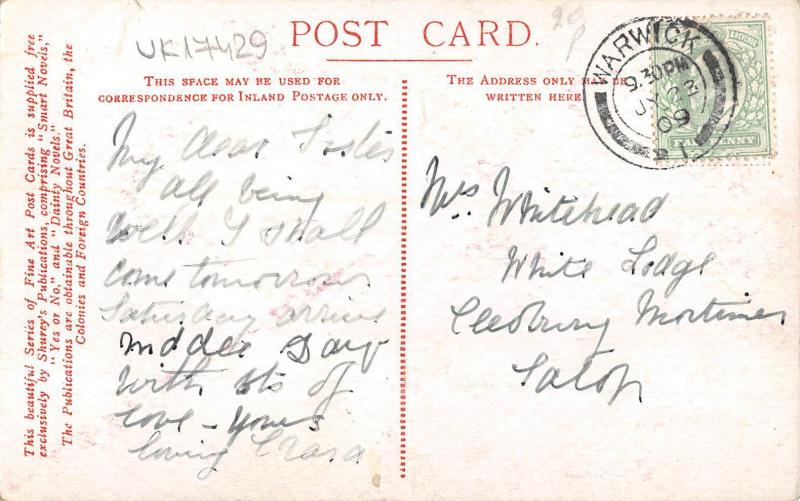 UK17429
POST CARD.
THIS SPACE MAY BE USED FOR
CORRESPONDENCE FOR INLAND POSTAGE ONLY.
THE ADDRESS ONLY MAY BE
WRITTEN HERE
WARWICK
9.30PM
JY 22
09
PENNY
This beautiful Series of Fine Art Post Cards is supplied free
exclusively by Shurey's Publications, comprising "Smart Novels,"
"Yes or No," and "Dainty Novels."
The Publications are obtainable throughout Great Britain, the
Colonies and Foreign Countries.
My dear
all being
well I shall
come tomorrow
Saturday arrive
midder Day
with lots of
love - yours
loving Clara
Mrs Whitehead
White Lodge
Cleobury Mortimer
Salop